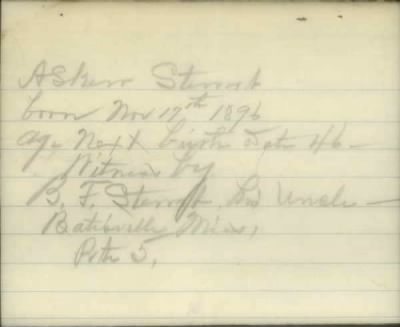 Askew Stewart
born Nov 17th 1896
age Next birth Date 46 -
Witness by
B. F. Stewart his Uncle -
Batesville Miss,
Rte 5,